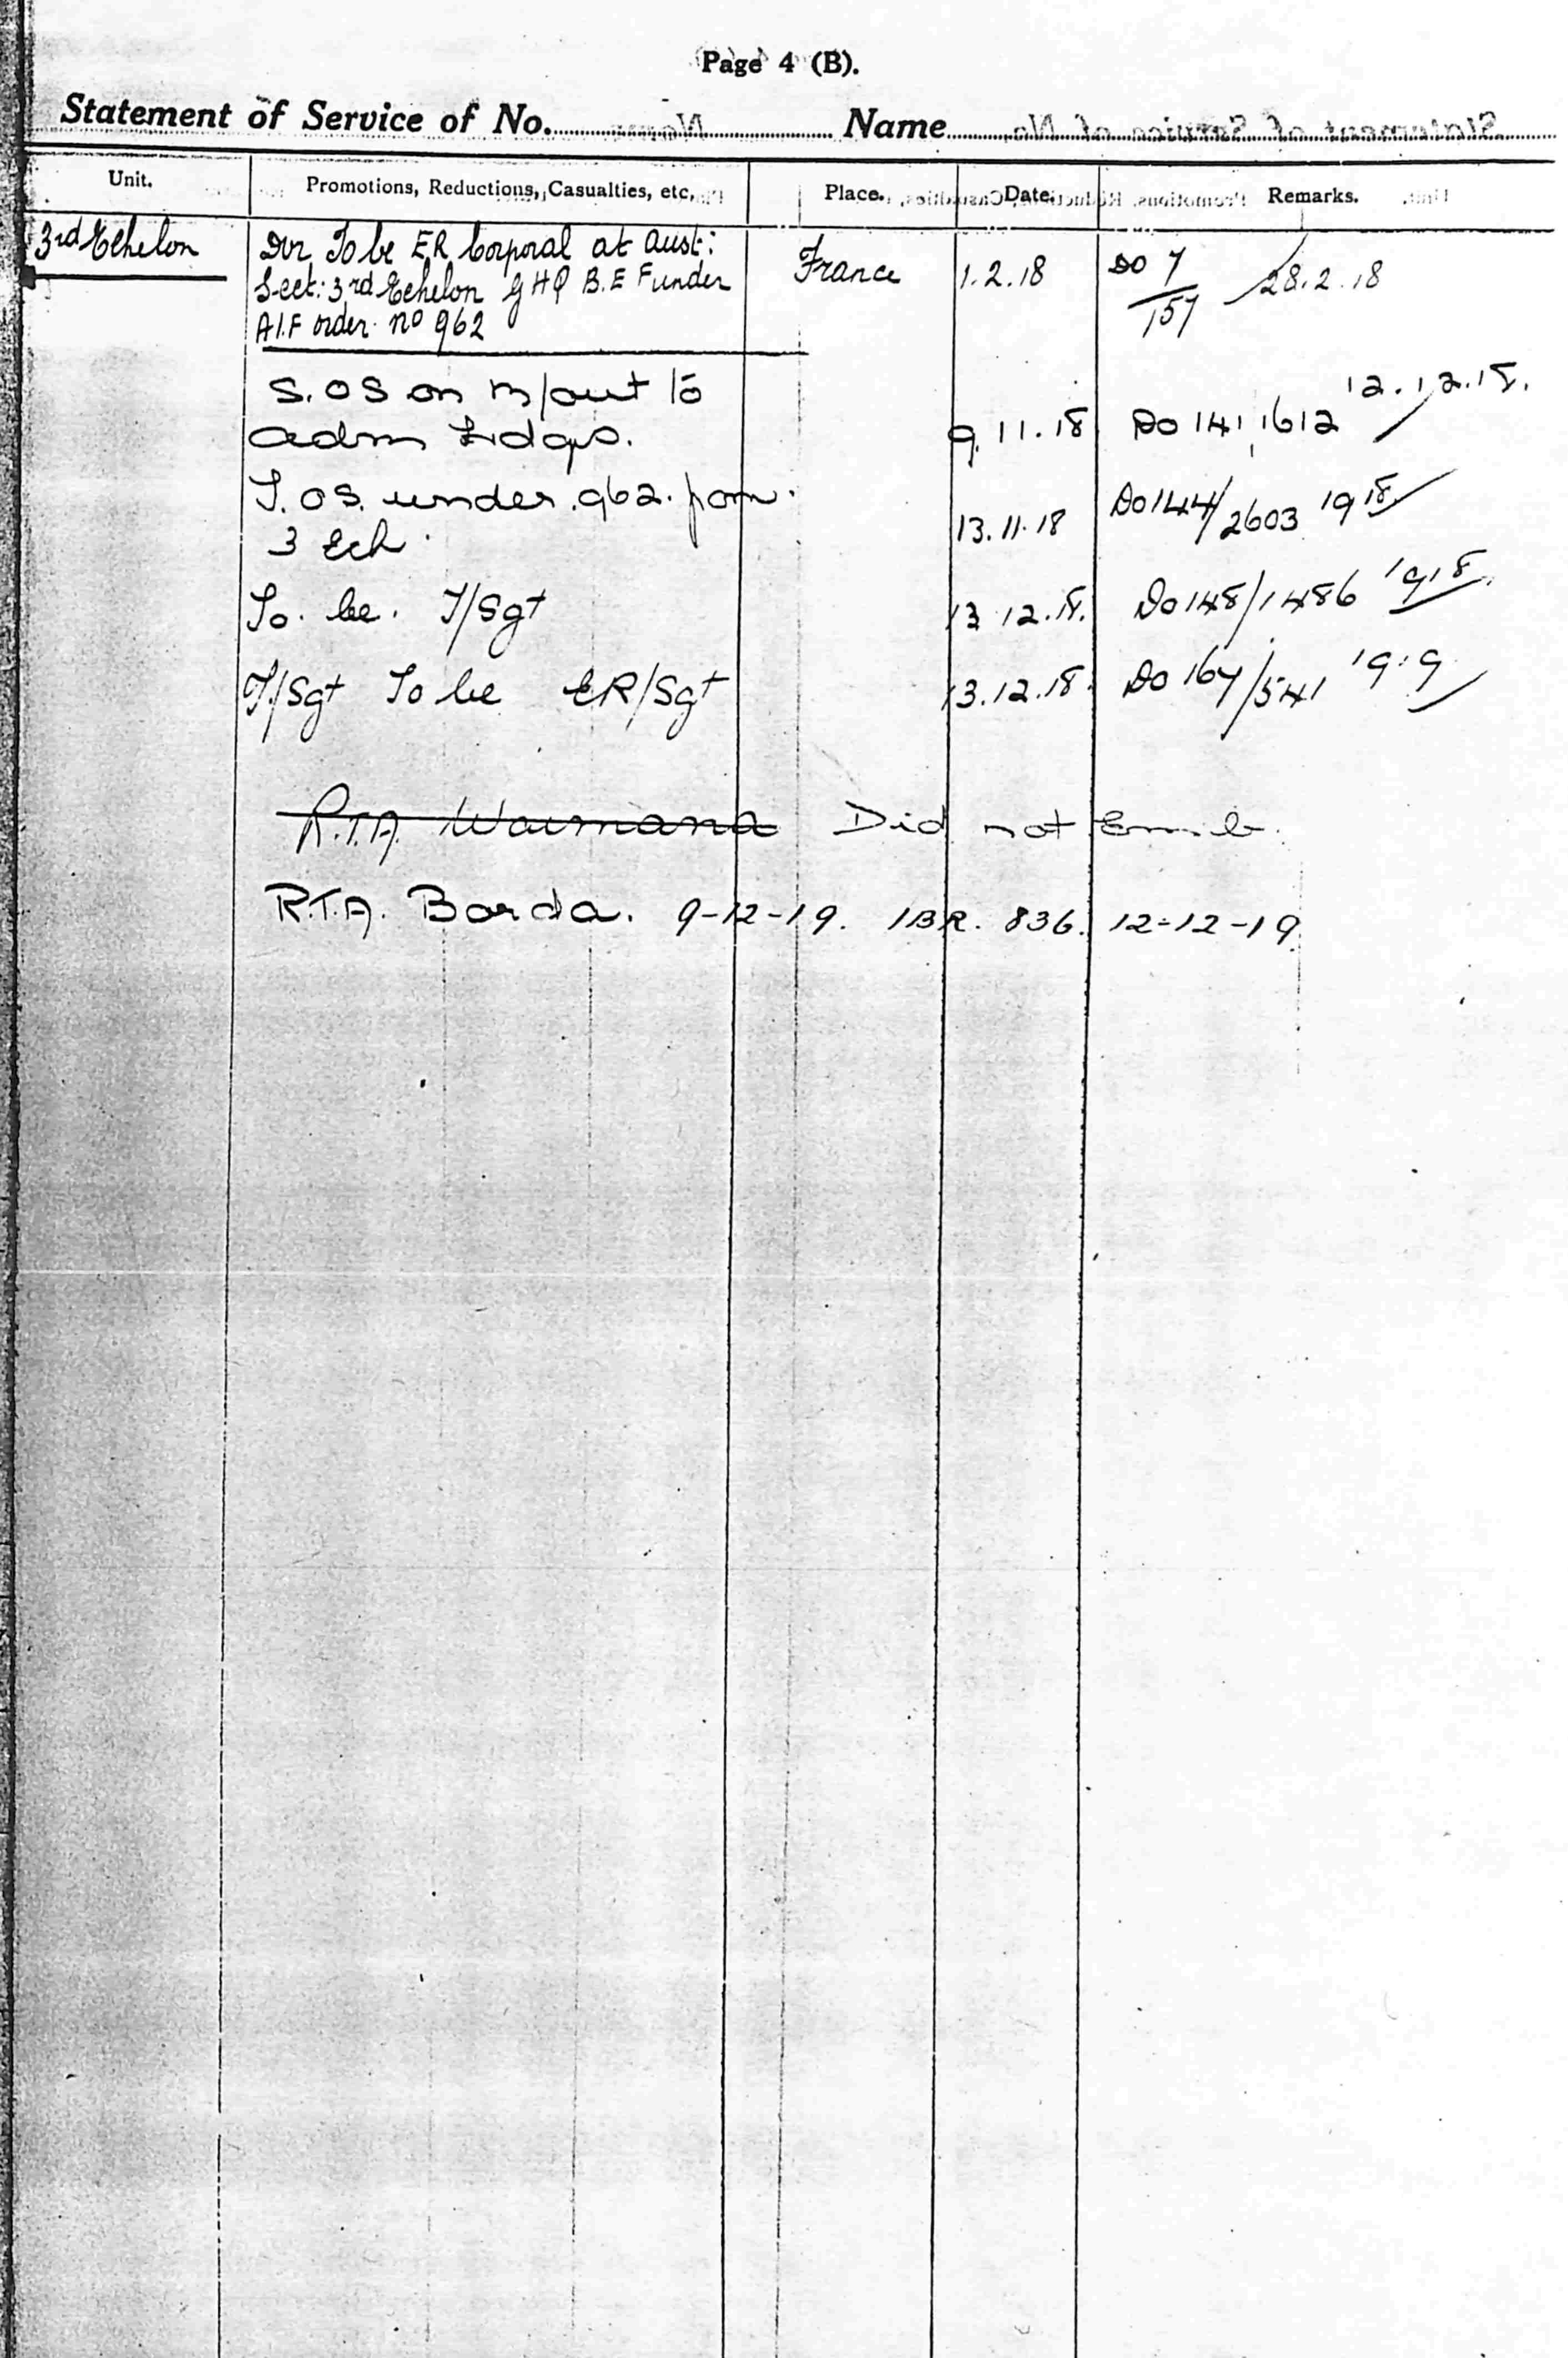 Page 4 (B).
Statement of Service of No. Name
Unit. Promotions, Reductions, Casualties, etc. Place. Date. Remarks.
3rd Echelon Dvr To be E.R. Corporal at Aust: France 1.2.18 DO 7/157 28.2.18
Sect: 3rd Echelon G H Q B.E F under
A.I.F order no 962
S.OS on to 12.12.18.
adm Hdqrs. 9.11.18 DO 141 1612
T.OS. under .962. from.
3 Ech. 13.11.18 DO 144/2603 1918
To. be. T/Sgt 13 12.18. DO 148/1486 1918
T/Sgt To be ER/Sgt 13.12.18. DO 167/541 1919
R.T.A. Waimana Did not Emb.
R.T.A. Borda. 9-12-19. 1BR. 836. 12-12-19